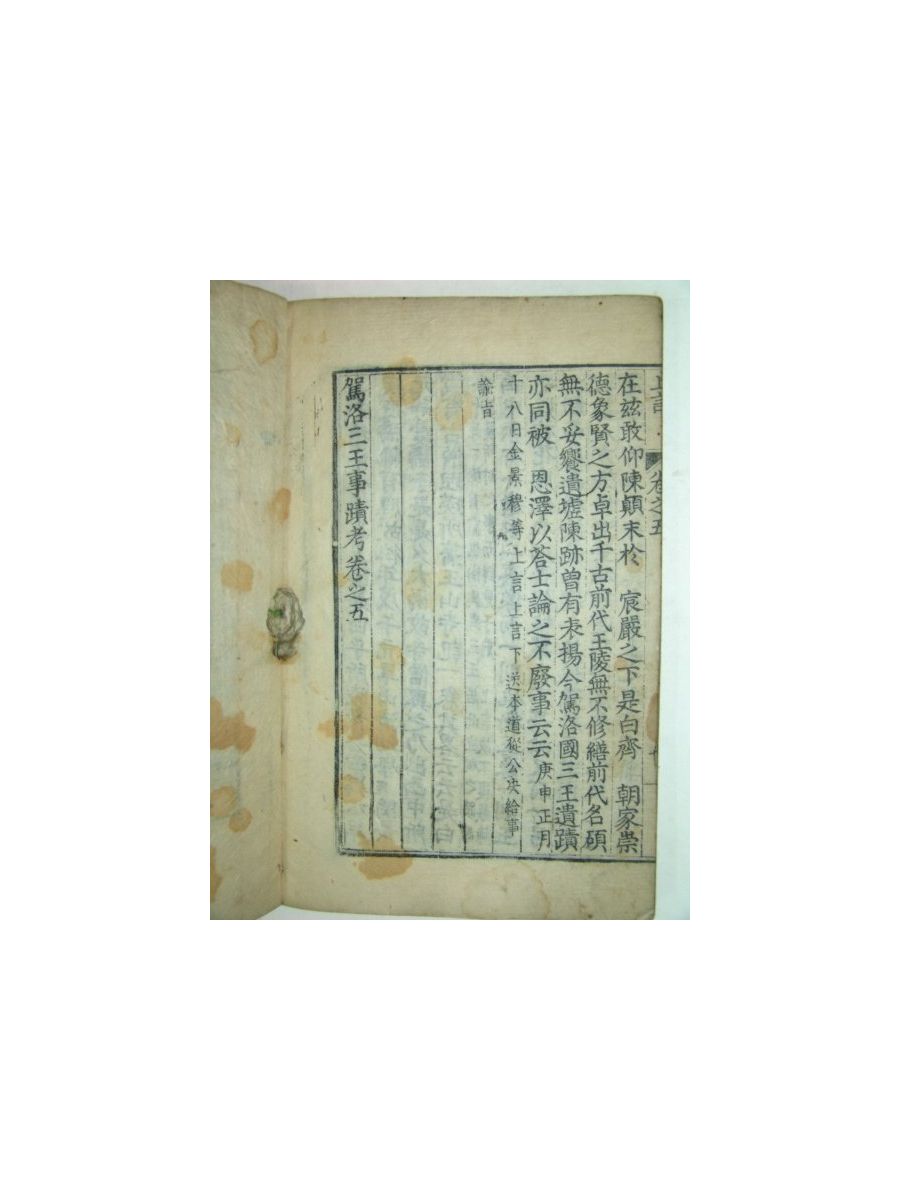 上言 卷之五
在玆敢仰陳顚末於 宸嚴之下是白齊 朝家崇
德象賢之方卓出千古前代王陵無不修繕前代名碩
無不妥饗遺墟陳跡曾有表揚今駕洛國三王遺蹟
亦同被 恩澤以答士論之不廢事云云庚申正月
十八日金景穆等上言上言下送本道從公決給事
諭旨
駕洛三王事蹟考卷之五